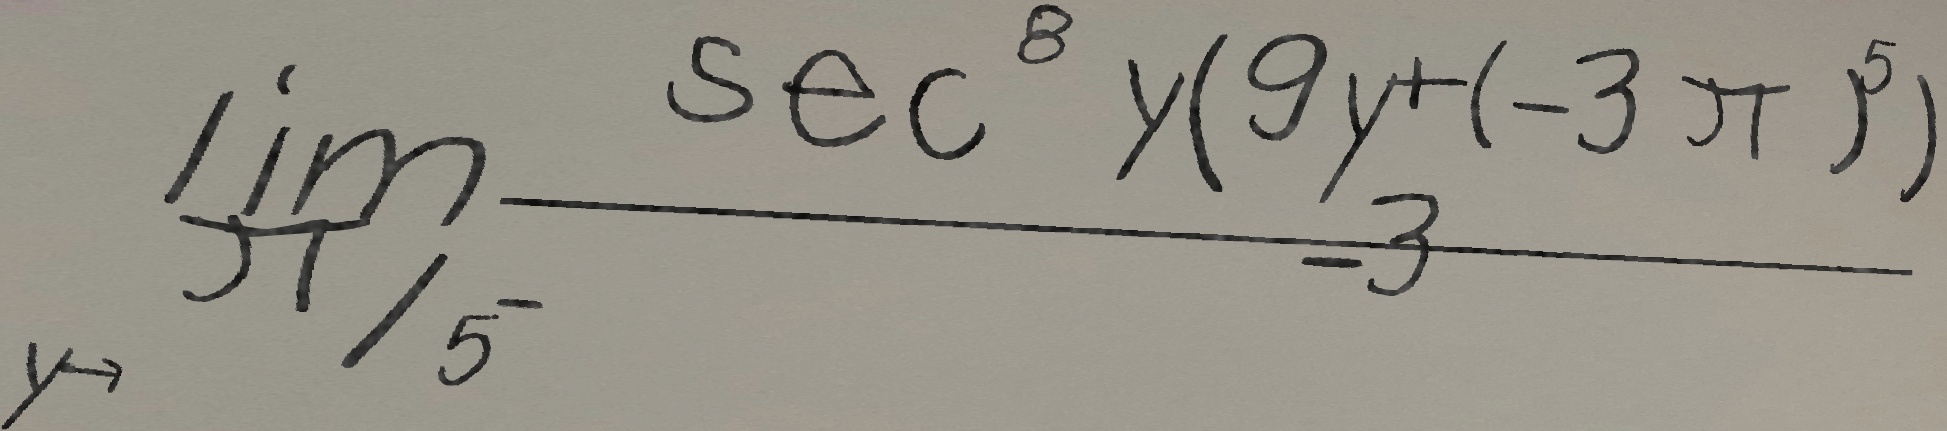 lim y→π/5⁻ sec⁸ y(9y+(-3π)⁵) / -3